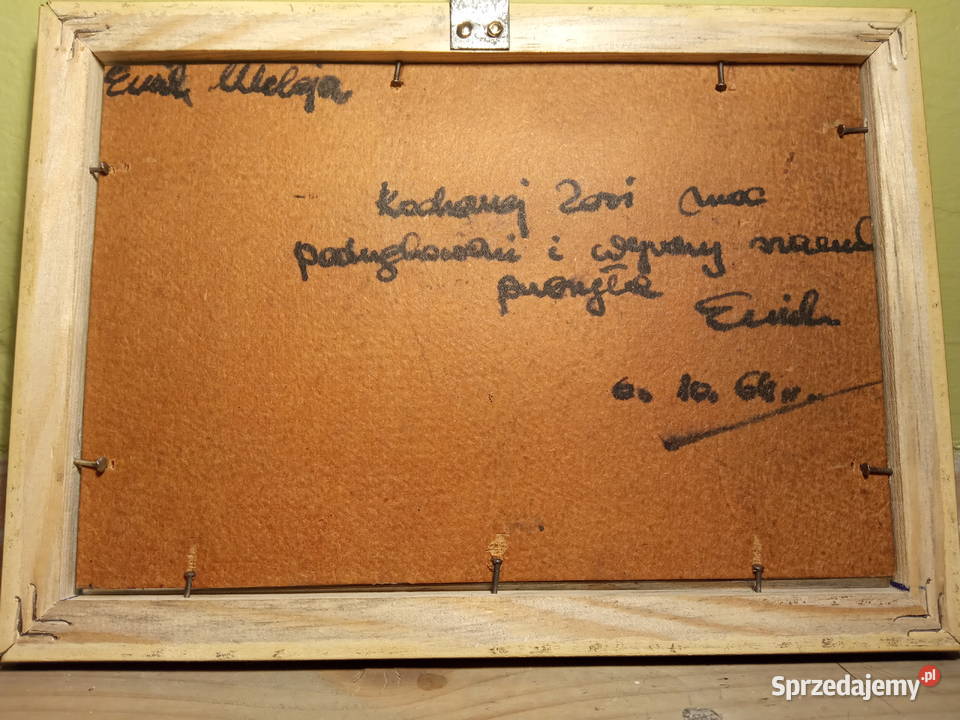 Emil
Kochanej Zosi moc
podziękowań i wyrazy
przesyła
Emil
6. 10. 64 r.
Sprzedajemy.pl